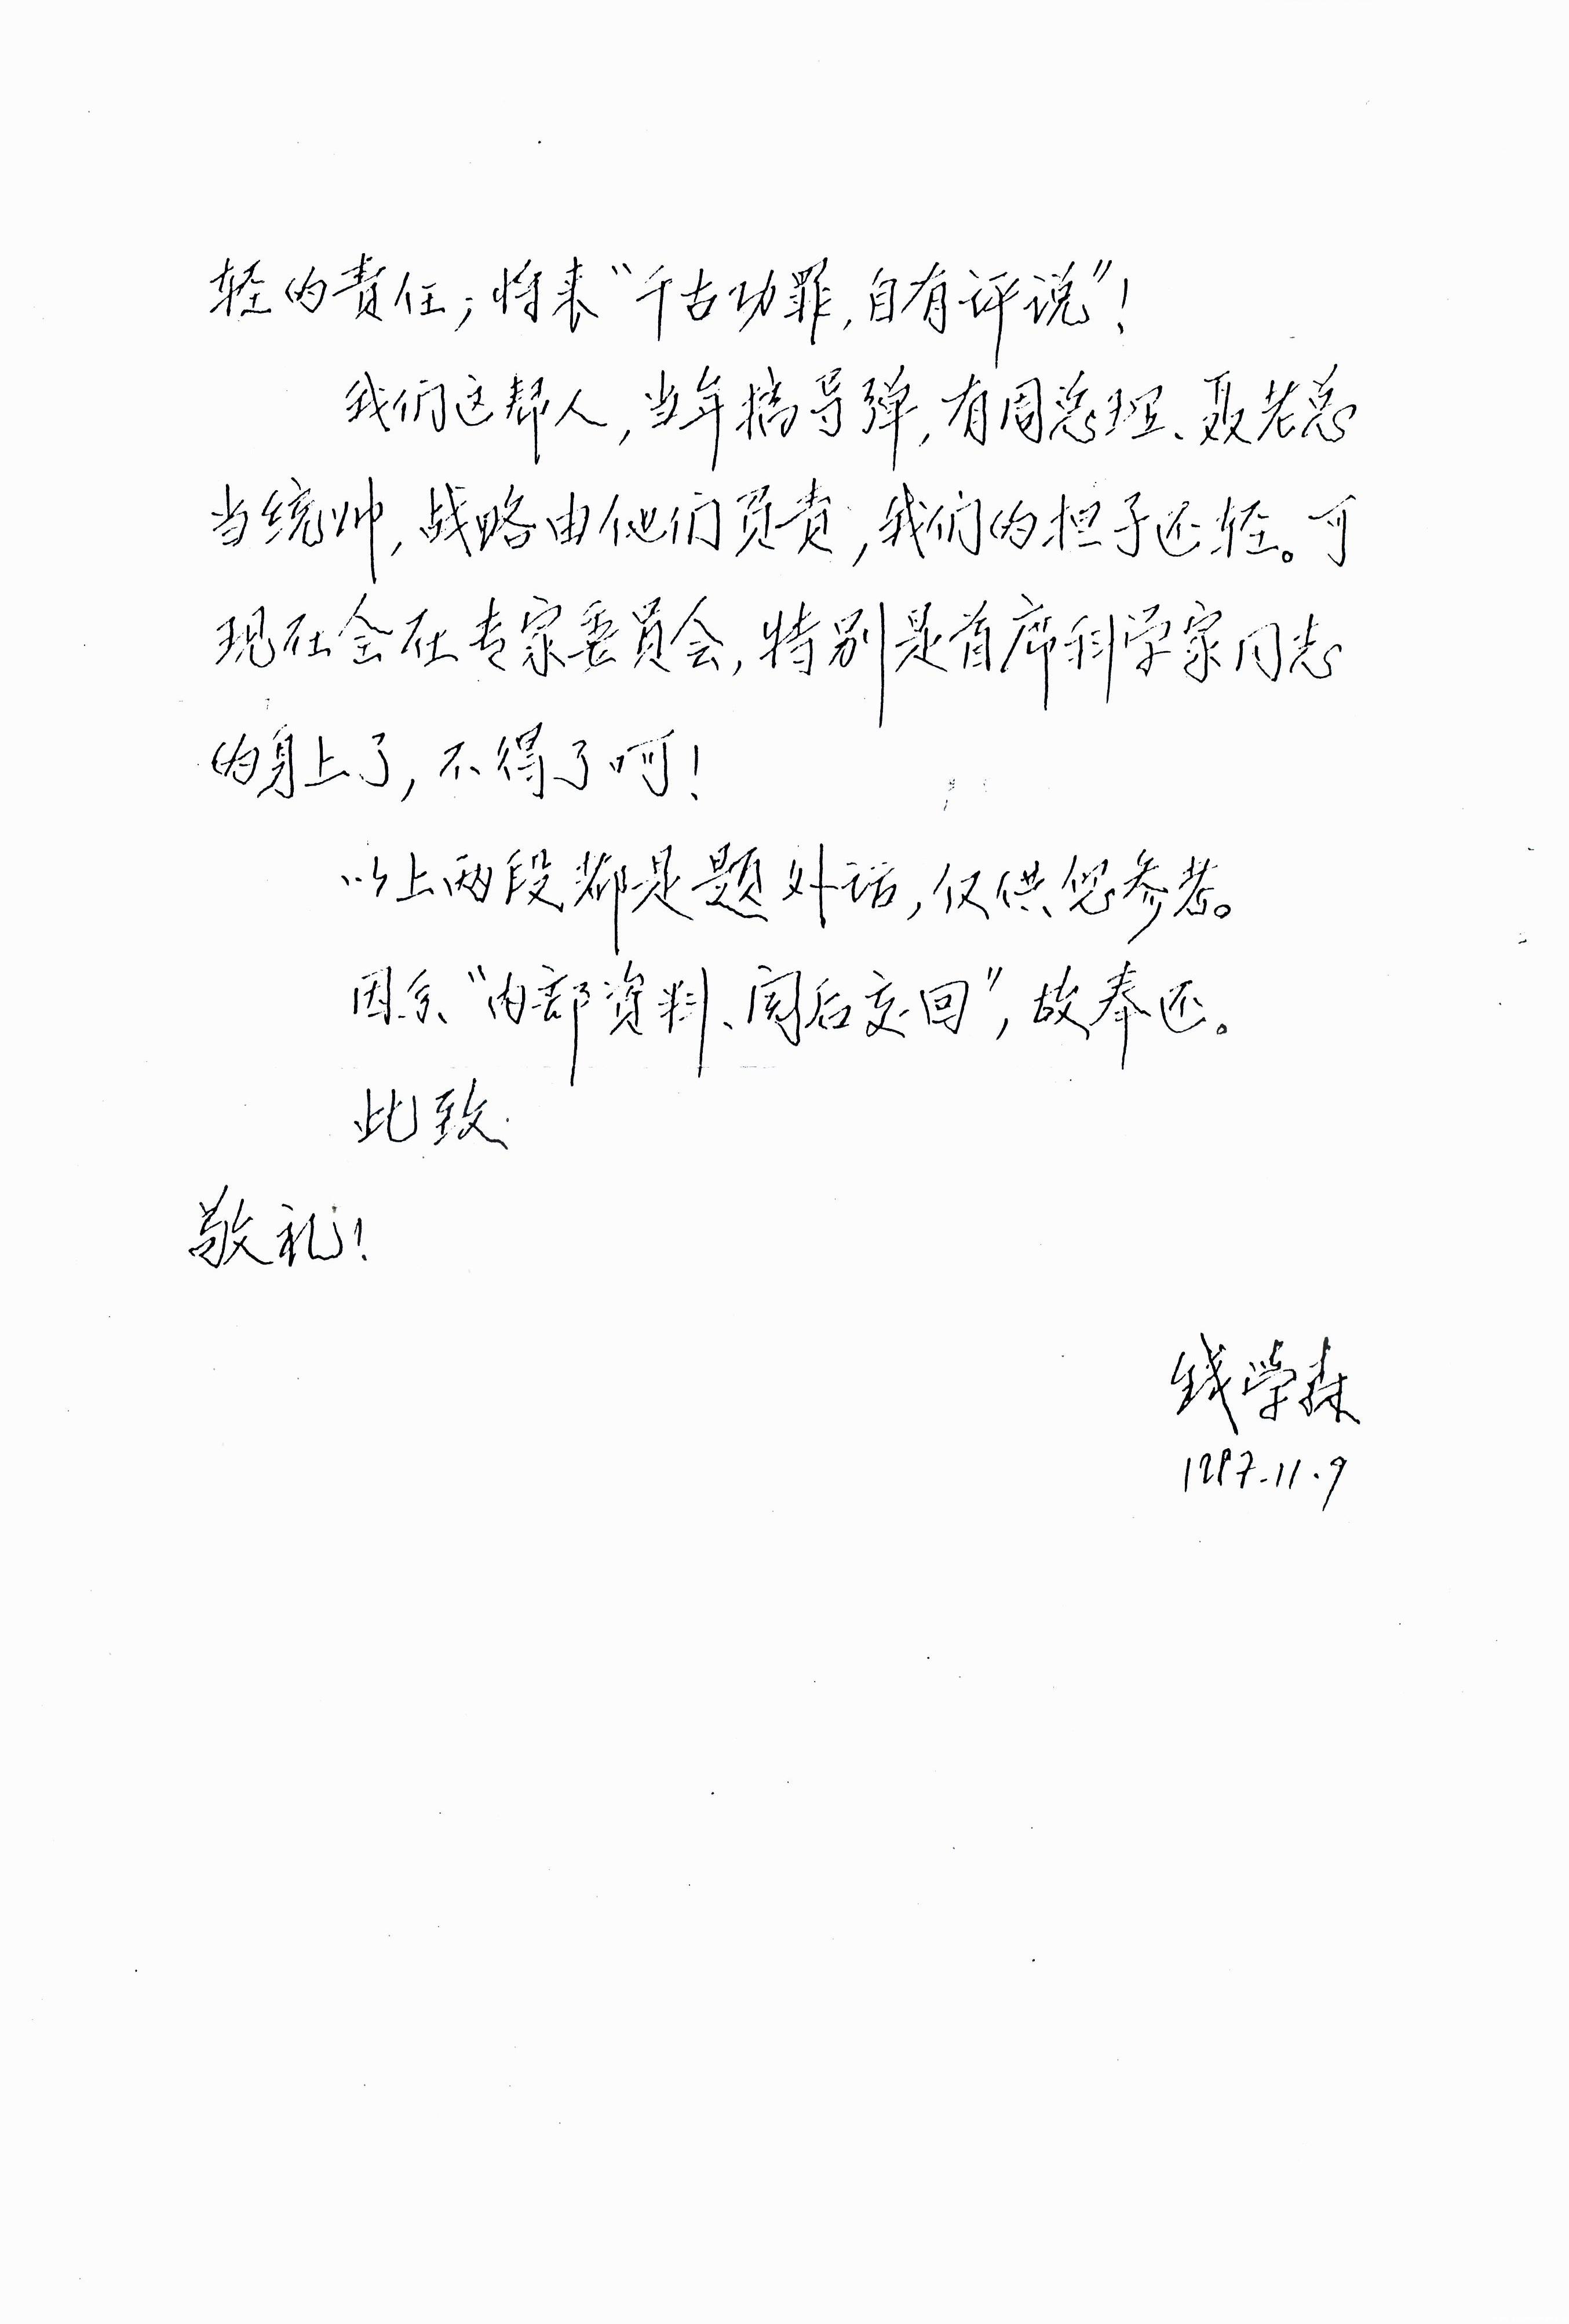 轻的责任；将来“千古功罪，自有评说”！
我们这帮人，当年搞导弹，有周总理、聂老总
当统帅，战略由他们负责，我们的担子还轻。可
现在全在专家委员会，特别是首席科学家同志
的身上了，不得了呵！
以上两段都是题外话，仅供您参考。
因系“内部资料、阅后交回”，故奉还。
此致
敬礼！
钱学森
1987.11.9